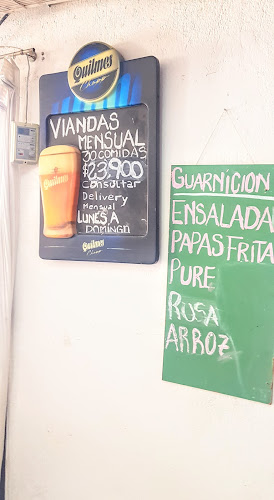 Quilmes
Chopp
VIANDAS
MENSUAL
30 COMIDAS
$23,900
Consultar
Delivery
Mensual
LUNES A
DOMINGO
Quilmes
Quilmes
GUARNICION
ENSALADA
PAPAS FRITA
PURE
RUSA
ARROZ